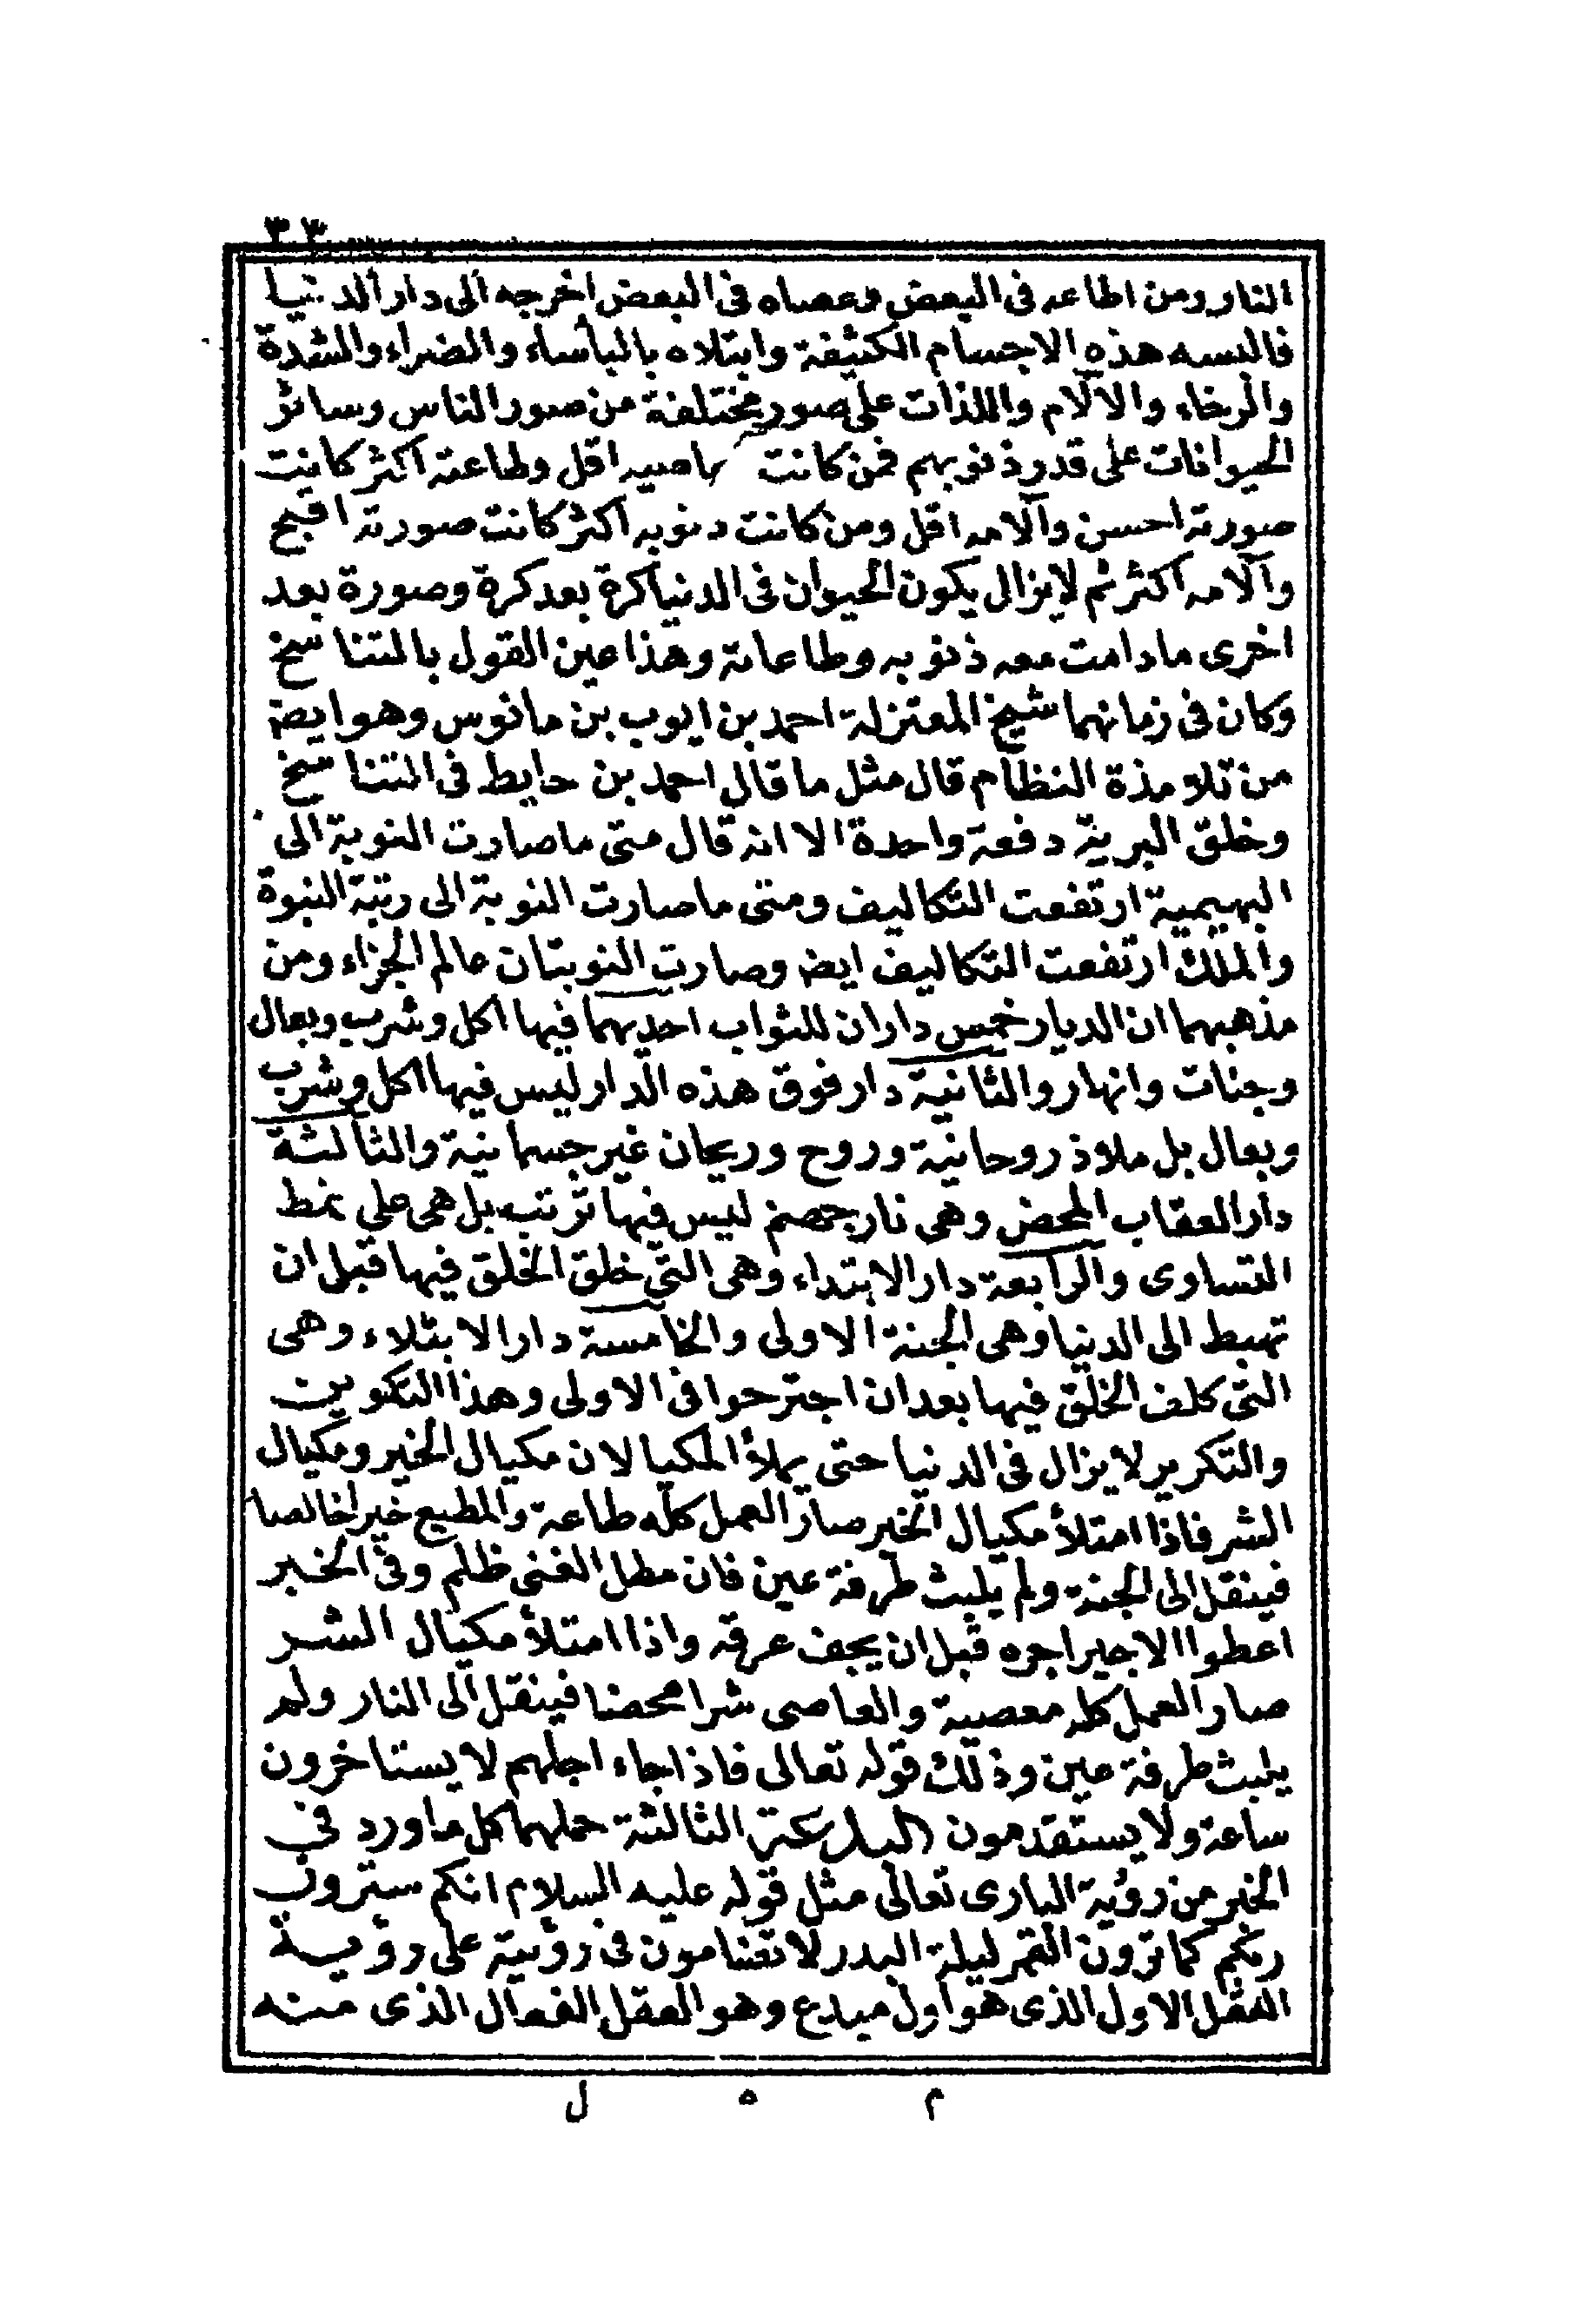 ٣٣
النار ومن اطاعه في البعض وعصاه في البعض اخرجه الى دار الدنيا
فالبسه هذه الاجسام الكثيفة وابتلاه بالبأساء والضراء والشدة
والرخاء والآلام واللذات على صور مختلفة من صور الناس وسائر
الحيوانات على قدر ذنوبهم فمن كانت معاصيه اقل وطاعته اكثر كانت
صورته احسن وآلامه اقل ومن كانت ذنوبه اكثر كانت صورته اقبح
وآلامه اكثر ثم لا يزال يكون الحيوان في الدنيا كرة بعد كرة وصورة بعد
اخرى ما دامت معه ذنوبه وطاعاته وهذا عين القول بالتناسخ
وكان في زمانهما شيخ المعتزلة احمد بن ايوب بن مانوس وهو ايضا
من تلامذة النظام قال مثل ما قال احمد بن حايط في التناسخ
وخلق البرية دفعة واحدة الا انه قال متى ما صارت النوبة الى
البهيمية ارتفعت التكاليف ومتى ما صارت النوبة الى رتبة النبوة
والملك ارتفعت التكاليف ايضا وصارت النوبتان عالم الجزاء ومن
مذهبهما ان الديار خمس داران للثواب احديهما فيها اكل وشرب وبعال
وجنات وانهار والثانية دار فوق هذه الدار ليس فيها اكل وشرب
وبعال بل ملاوذ روحانية وروح وريحان غير جسمانية والثالثة
دار العقاب المحض وهي نار جهنم ليس فيها ترتب بل هي على نمط
التساوى والرابعة دار الابتداء وهي التي خلق الخلق فيها قبل ان
تهبط الى الدنيا وهي الجنة الاولى والخامسة دار الابتلاء وهي
التي كلف الخلق فيها بعد ان اجترحوا في الاولى وهذا التكوين
والتكرير لا يزال في الدنيا حتى يملأ المكيالان مكيال الخير ومكيال
الشر فاذا امتلأ مكيال الخير صار العمل كله طاعة والمطيع خيرا خالصا
فينقل الى الجنة ولم يلبث طرفة عين فان مطل الغني ظلم وفي الخبر
اعطوا الاجير اجره قبل ان يجف عرقه واذا امتلأ مكيال الشر
صار العمل كله معصية والعاصى شرا محضا فينقل الى النار ولم
يلبث طرفة عين وذلك قوله تعالى فاذا جاء اجلهم لا يستاخرون
ساعة ولا يستقدمون البدعة الثالثة حملهما كل ما ورد في
الخبر من رؤية البارى تعالى مثل قوله عليه السلام انكم سترون
ربكم كما ترون القمر ليلة البدر لا تضامون في رؤيته على رؤية
العقل الاول الذى هو اول مبدع وهو العقل الفعال الذى منه
م ه ل